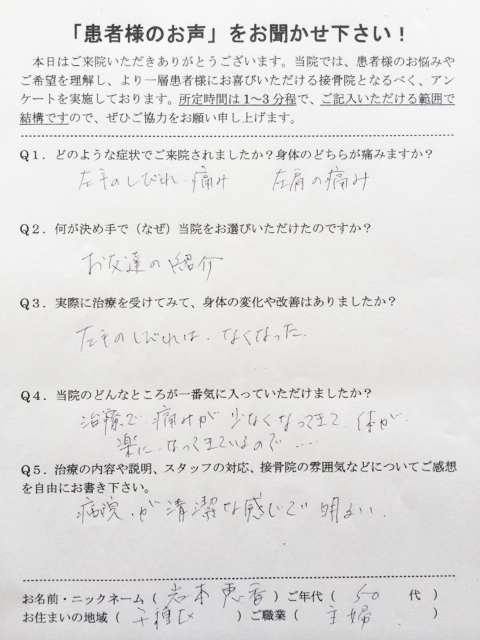 「患者様のお声」をお聞かせ下さい！
本日はご来院いただきありがとうございます。当院では、患者様のお悩みや
ご希望を理解し、より一層患者様にお喜びいただける接骨院となるべく、アン
ケートを実施しております。所定時間は1～3分程で、ご記入いただける範囲で
結構ですので、ぜひご協力をお願い申し上げます。
Q1．どのような症状でご来院されましたか？身体のどちらが痛みますか？
左手のしびれ・痛み 左肩の痛み
Q2．何が決め手で（なぜ）当院をお選びいただけたのですか？
お友達の紹介
Q3．実際に治療を受けてみて、身体の変化や改善はありましたか？
左手のしびれは、なくなった
Q4．当院のどんなところが一番気に入っていただけましたか？
治療で、痛みが少なくなってきて、体が
楽に、なってきているので….
Q5．治療の内容や説明、スタッフの対応、接骨院の雰囲気などについてご感想
を自由にお書き下さい。
病院が清潔な感じで明るい、
お名前・ニックネーム（岩本恵香）ご年代（50 代）
お住まいの地域（千種区）ご職業（主婦）